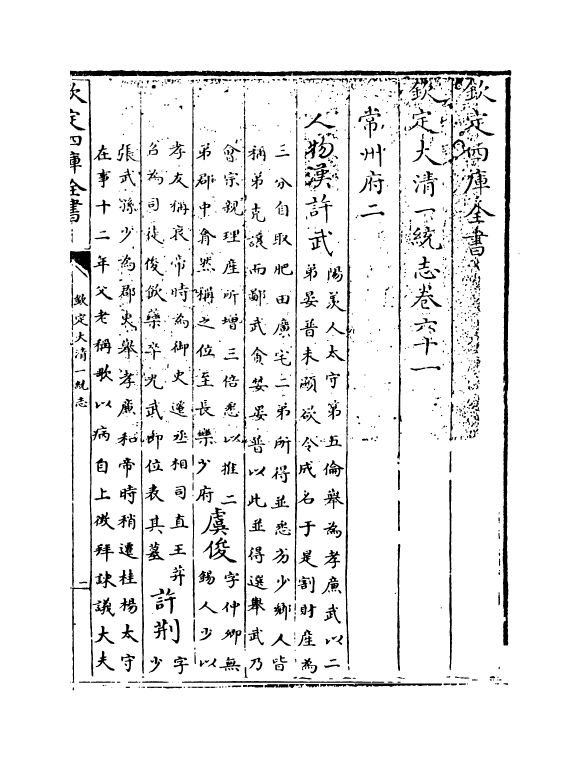 欽定四庫全書
欽定大清一統志卷六十一
常州府二
人物漢許武
陽羨人太守第五倫舉為孝廉武以二
弟晏普未顯欲令成名于是割財産為
三分自取肥田廣宅二弟所得並悉劣少鄉人皆
稱弟克讓而鄙武貪婪晏普以此並得選舉武乃
會宗親理産所增三倍悉以推二
弟郡中翕然稱之位至長樂少府
虞俊
字仲卿無
錫人少以
孝友稱哀帝時為御史遷丞相司直王莽
召為司徒俊飲藥卒光武即位表其墓
許荆
字
少
張武孫少為郡吏舉孝廉和帝時稍遷桂楊太守
在事十二年父老稱歌以病自上徵拜諫議大夫
欽定四庫全書
欽定大清一統志